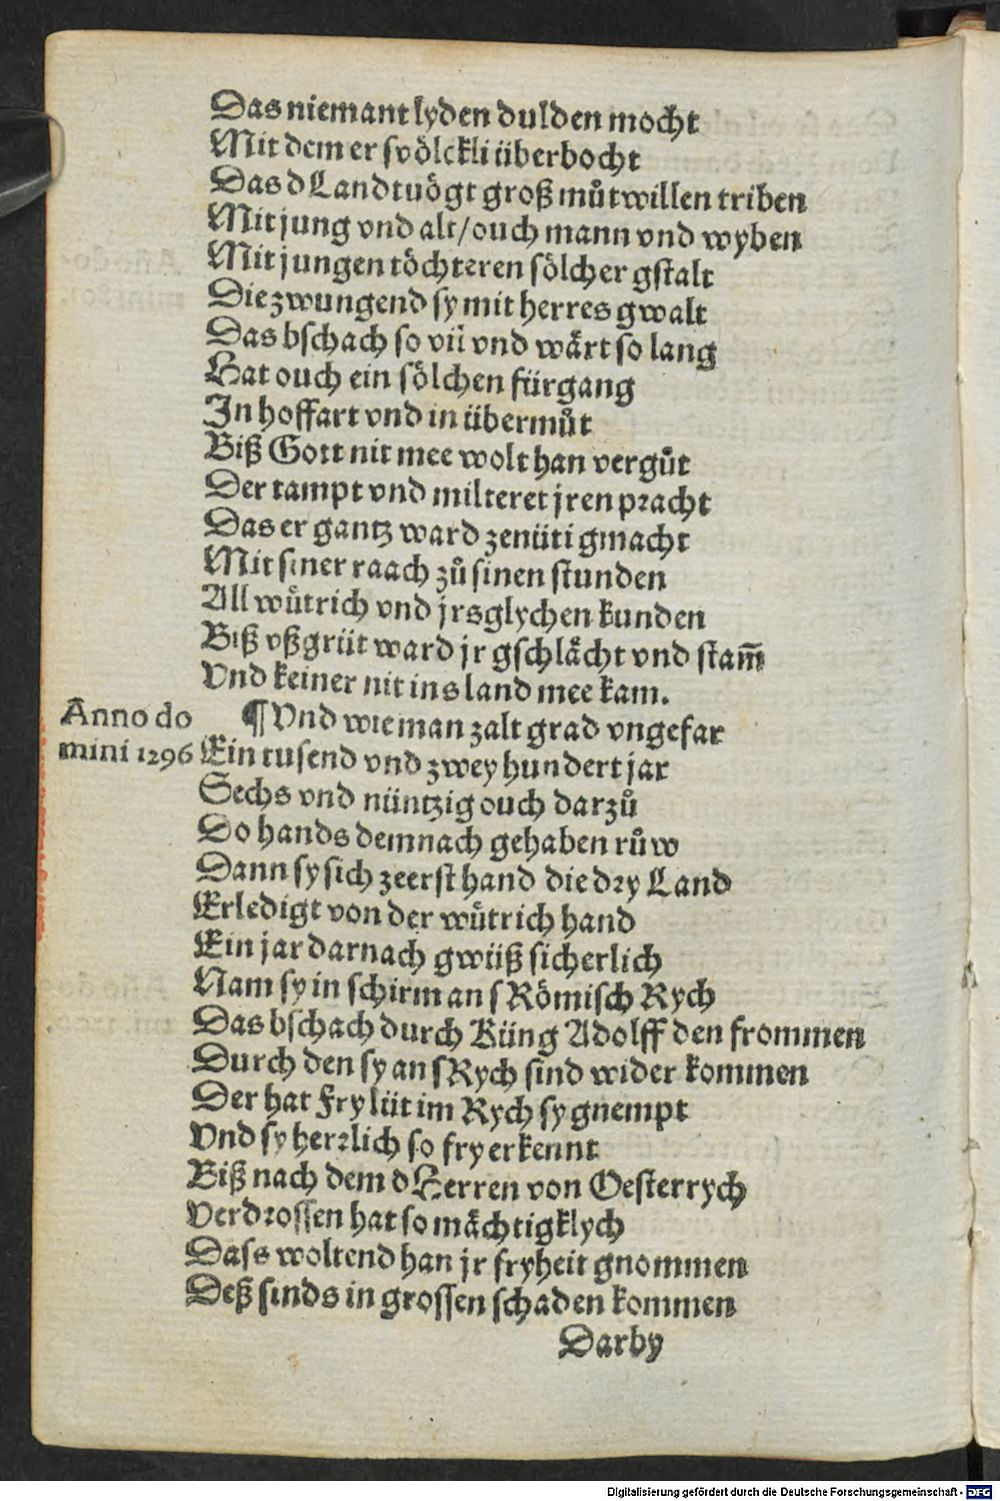 Das niemant lyden dulden mocht
Mit dem er svölckli überbocht
Das d Landtuögt groß můtwillen triben
Mit jung vnd alt / ouch mann vnd wyben
Mit jungen töchteren sölcher gstalt
Die zwungend sy mit herres gwalt
Das bschach so vil vnd wärt so lang
Hat ouch ein sölchen fürgang
In hoffart vnd in übermůt
Biß Gott nit mee wolt han vergůt
Der tampt vnd milteret jren pracht
Das er gantz ward zenüti gmacht
Mit siner raach zů sinen stunden
All wůtrich vnd jrsglychen kunden
Biß vßgrüt ward jr gschlächt vnd stam̄
Vnd keiner nit ins land mee kam.
Anno do
mini 1296
¶ Vnd wie man zalt grad vngefar
Ein tusend vnd zwey hundert jar
Sechs vnd nüntzig ouch darzů
Do hands demnach gehaben růw
Dann sy sich zeerst hand die dry Land
Erledigt von der wůtrich hand
Ein jar darnach gwüß sicherlich
Nam sy in schirm an s Römisch Rych
Das bschach durch Küng Adolff den frommen
Durch den sy an s Rych sind wider kommen
Der hat Fry lüt im Rych sy gnempt
Vnd sy herrlich so fry erkennt
Biß nach dem d Herren von Oesterrych
Verdrossen hat so mächtigklych
Dass woltend han jr fryheit gnommen
Deß sinds in grossen schaden kommen
Darby
Digitalisierung gefördert durch die Deutsche Forschungsgemeinschaft - DFG